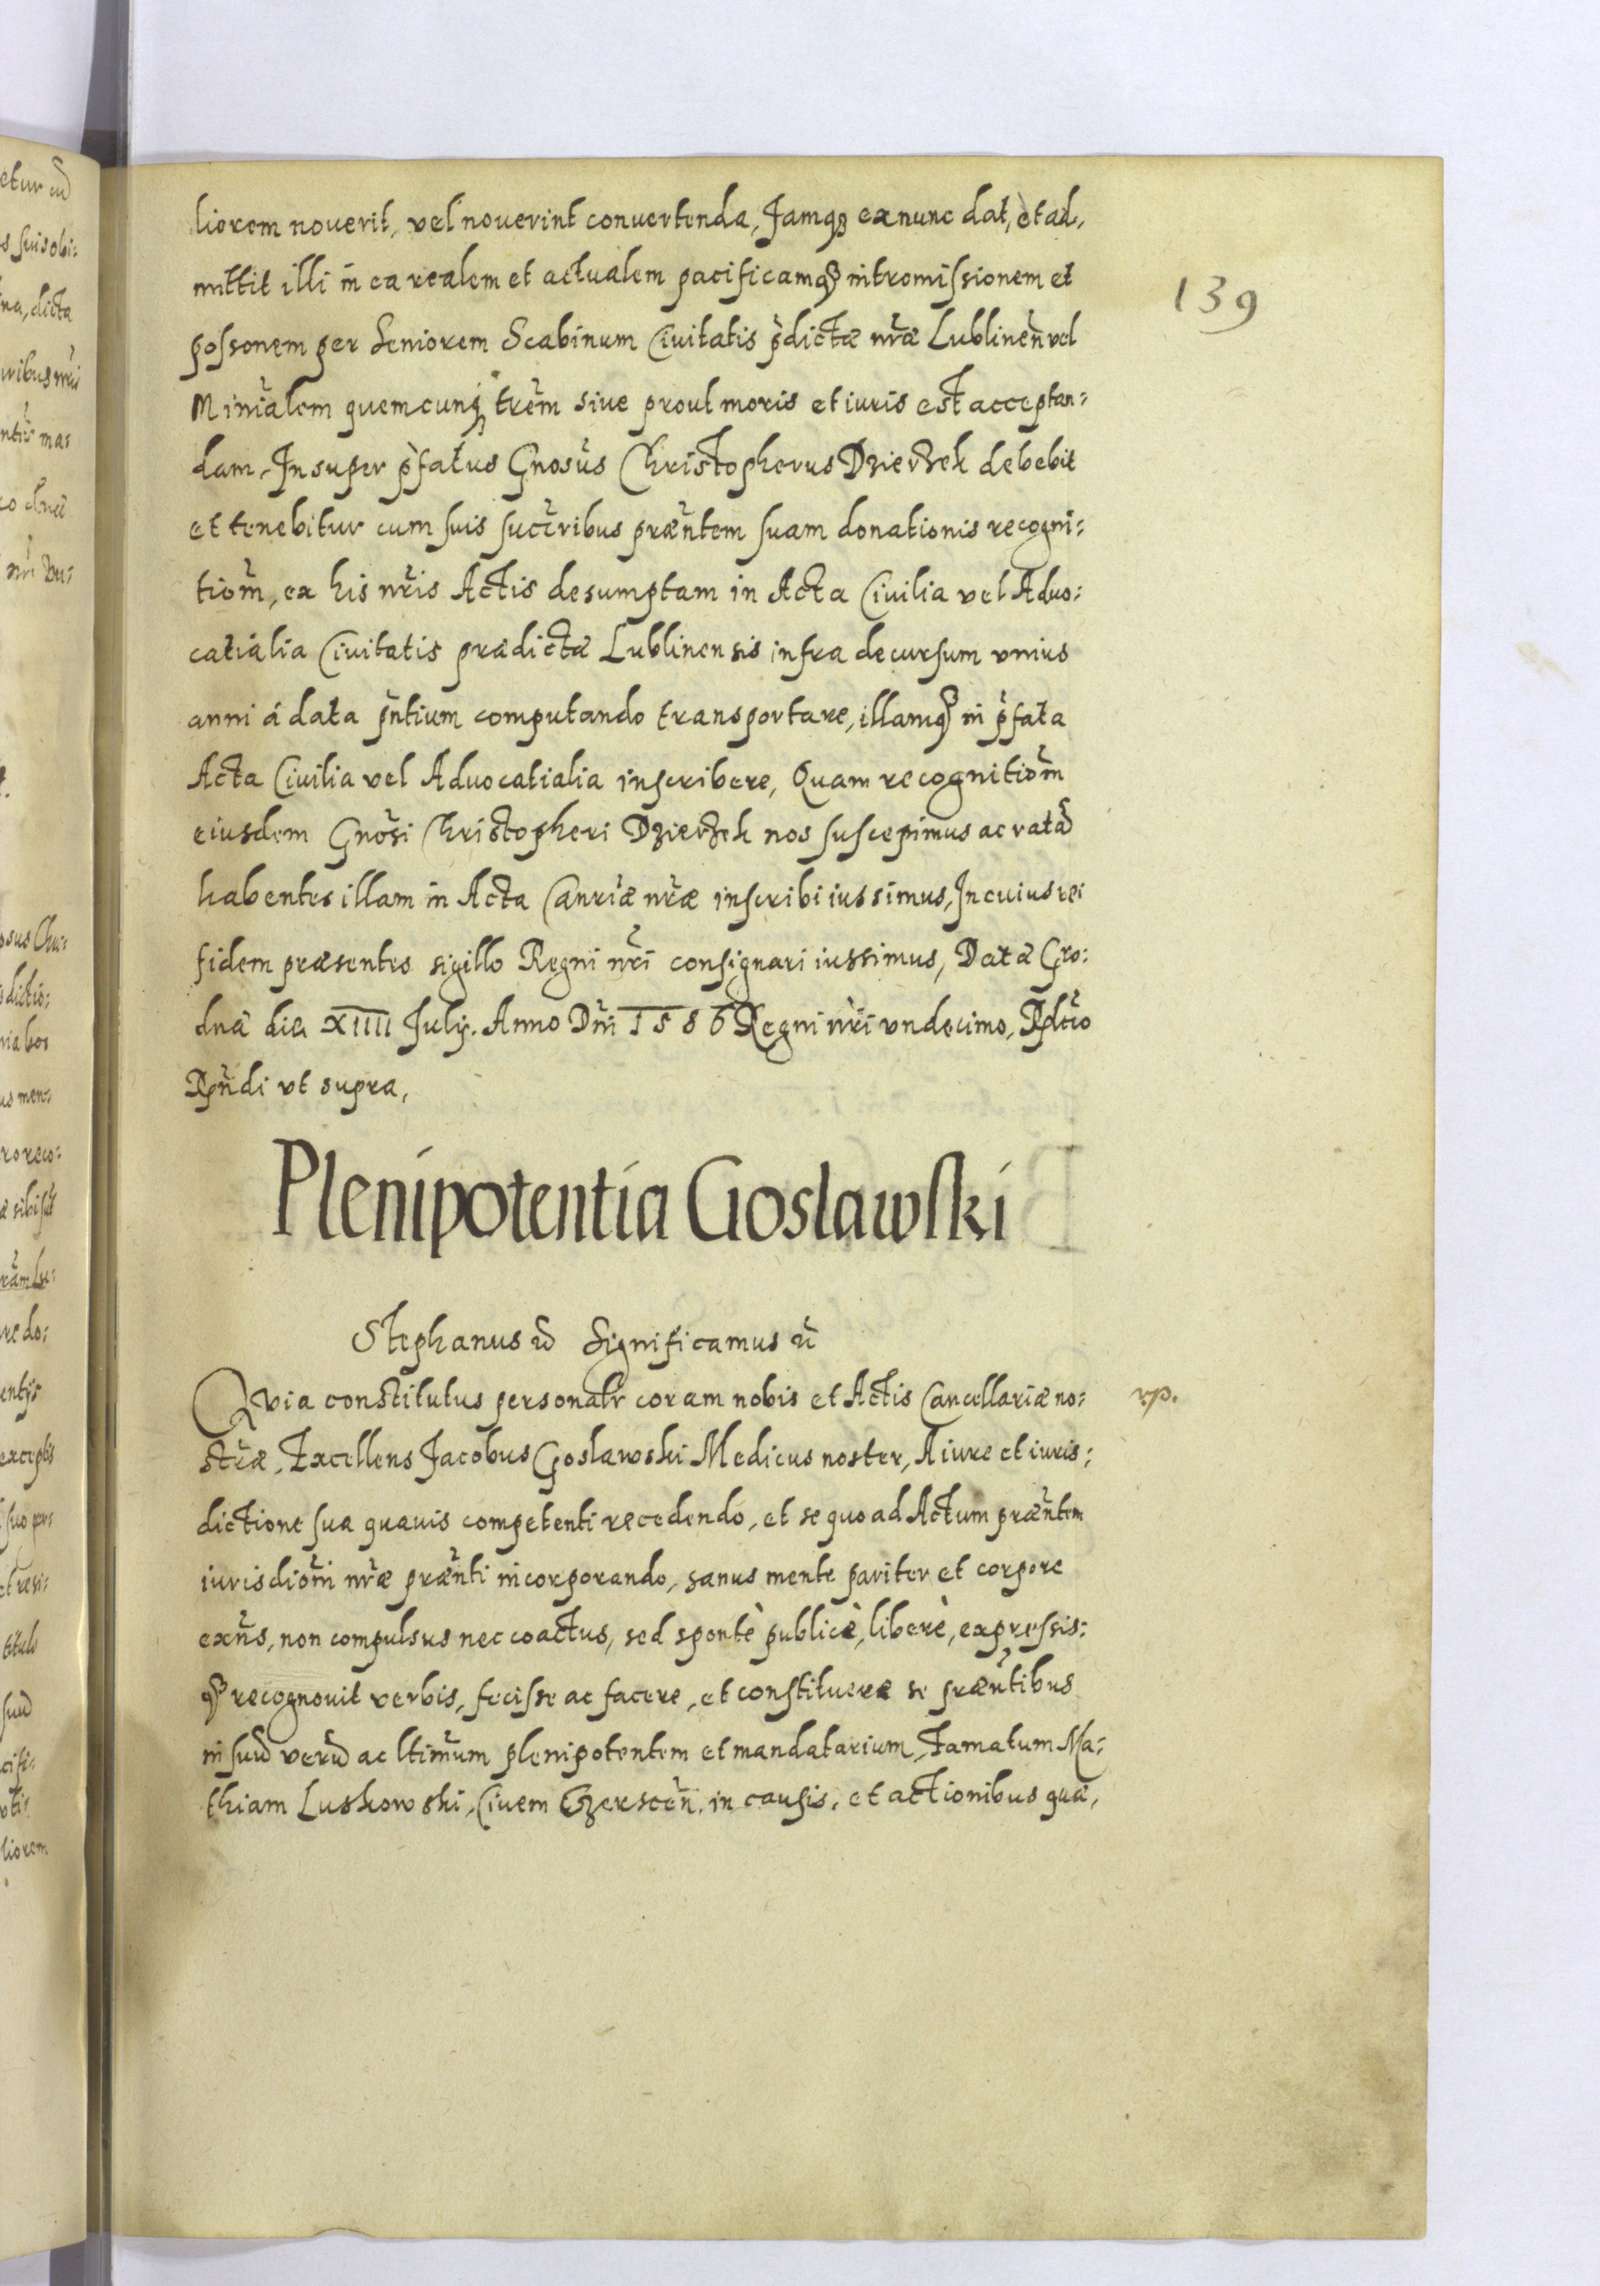 139
liorem noverit, vel noverint convertenda, Jamq₃ ex nunc dat, et ad,
mittit illi in ea realem et actualem pacificamq₃ intromissionem et
possonem per Seniorem Scabinum Civitatis p̃dictæ nr̃æ Lublineñ vel
Minialem quemcunq₃ trẽm sive prout moris et iuris est acceptan:
dam, Insuper p̃fatus Gnosũs Christopherus Dzierzek debebit
et tenebitur cum suis succ̃ribus præñtem suam donationis recogni:
tiom̃, ex his nr̃is Actis desumptam in Acta Civilia vel Advo:
catialia Civitatis prædictæ Lublinensis infra decursum unius
anni á data p̃ntium computando transportare, illamq₃ in p̃fata
Acta Civilia vel Advocatialia inscribere, Quam recognitiom̃
eiusdem Gnosĩ Christopheri Dzierzek nos suscepimus ac ratã
habentes illam in Acta Canriæ nr̃æ inscribi iussimus, In cuius rei
fidem præsentes sigillo Regni nr̃i consignari iussimus, Datæ Gro:
dnæ die XIIII Julÿ. Anno Dñi 1586 Regni nr̃i undecimo,
ut supra,
Plenipotentia Goslawski
Stephanus Significamus
Quia constitutus personalr̃ coram nobis et Actis Cancellariæ no:
rp.
str̃æ, Excellens Jacobus Goslawski Medicus noster, A iure et iuris:
dictione sua quavis competenti recedendo, et se quo ad Actum præñtem
iurisdiom̃i nr̃æ præñti incorporando, sanus mente pariter et corpore
exñs, non compulsus nec coactus, sed spontè publicè, liberè, expressis:
q₃ recognovit verbis, fecisse ac facere, et constituere se præñtibus
in suũ verũ ac ltim̃um plenipotentem et mandatarium, Famatum Ma:
thiam Luskowski, Civem Czersceñ. in causis, et actionibus quæ,